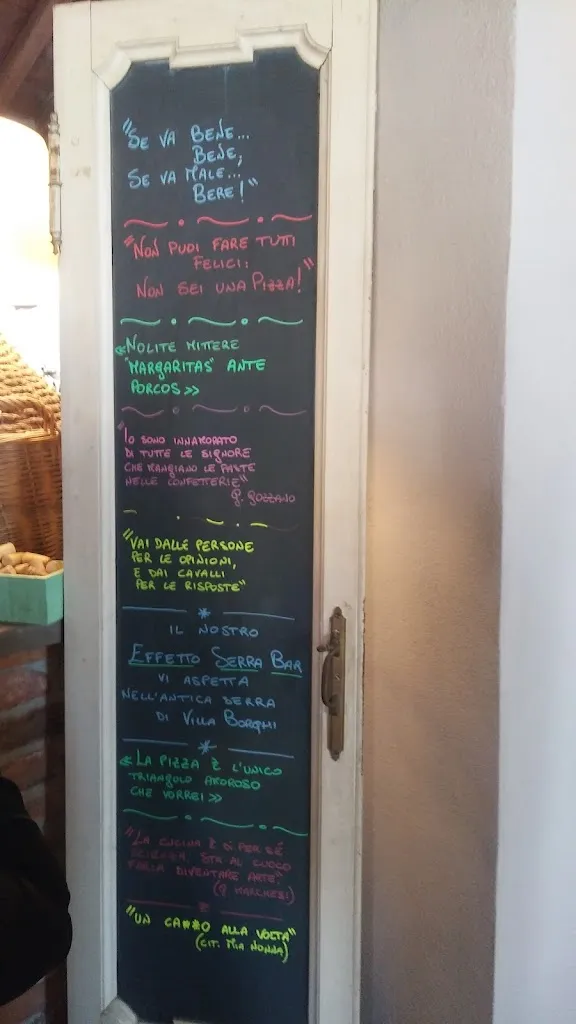 "SE VA BENE...
BENE,
SE VA MALE...
BERE!"
"NON PUOI FARE TUTTI
FELICI:
NON SEI UNA PIZZA!"
«NOLITE MITTERE
"MARGARITAS" ANTE
PORCOS»
"IO SONO INNAMORATO
DI TUTTE LE SIGNORE
CHE MANGIANO LE PASTE
NELLE CONFETTERIE"
G. GOZZANO
"VAI DALLE PERSONE
PER LE OPINIONI,
E DAI CAVALLI
PER LE RISPOSTE"
IL NOSTRO
EFFETTO SERRA BAR
VI ASPETTA
NELL'ANTICA SERRA
DI VILLA BORGHI
«LA PIZZA È L'UNICO
TRIANGOLO AMOROSO
CHE VORREI»
"LA CUCINA È DI PER SÉ
SCIENZA. STA AL CUOCO
FARLA DIVENTARE ARTE"
(G. MARCHESI)
"UN CA**O ALLA VOLTA"
(CIT. MIA NONNA)